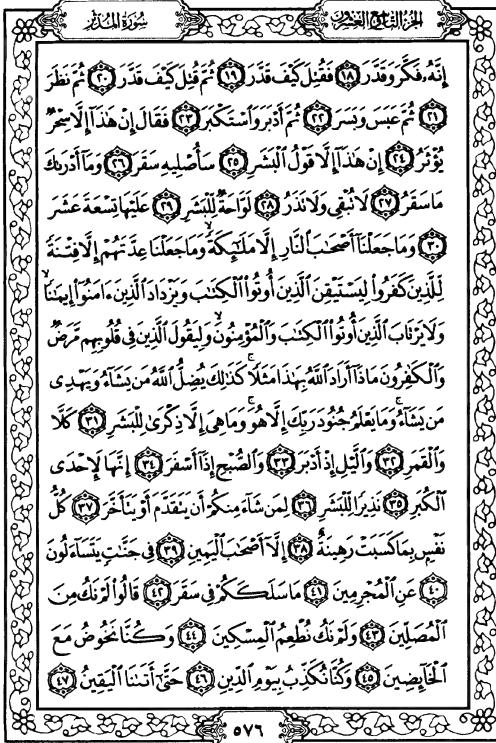 سُورَةُ المُدَّثِّر
الجُزءُ التَّاسِعُ وَالعِشرُونَ
إِنَّهُۥ فَكَّرَ وَقَدَّرَ ١٨ فَقُتِلَ كَيْفَ قَدَّرَ ١٩ ثُمَّ قُتِلَ كَيْفَ قَدَّرَ ٢٠ ثُمَّ نَظَرَ
٢١ ثُمَّ عَبَسَ وَبَسَرَ ٢٢ ثُمَّ أَدْبَرَ وَٱسْتَكْبَرَ ٢٣ فَقَالَ إِنْ هَٰذَآ إِلَّا سِحْرٌ
يُؤْثَرُ ٢٤ إِنْ هَٰذَآ إِلَّا قَوْلُ ٱلْبَشَرِ ٢٥ سَأُصْلِيهِ سَقَرَ ٢٦ وَمَآ أَدْرَىٰكَ
مَا سَقَرُ ٢٧ لَا تُبْقِى وَلَا تَذَرُ ٢٨ لَوَّاحَةٌ لِّلْبَشَرِ ٢٩ عَلَيْهَا تِسْعَةَ عَشَرَ
٣٠ وَمَا جَعَلْنَآ أَصْحَٰبَ ٱلنَّارِ إِلَّا مَلَٰٓئِكَةً ۙ وَمَا جَعَلْنَا عِدَّتَهُمْ إِلَّا فِتْنَةً
لِّلَّذِينَ كَفَرُوا۟ لِيَسْتَيْقِنَ ٱلَّذِينَ أُوتُوا۟ ٱلْكِتَٰبَ وَيَزْدَادَ ٱلَّذِينَ ءَامَنُوٓا۟ إِيمَٰنًا ۙ
وَلَا يَرْتَابَ ٱلَّذِينَ أُوتُوا۟ ٱلْكِتَٰبَ وَٱلْمُؤْمِنُونَ ۙ وَلِيَقُولَ ٱلَّذِينَ فِى قُلُوبِهِم مَّرَضٌ
وَٱلْكَٰفِرُونَ مَاذَآ أَرَادَ ٱللَّهُ بِهَٰذَا مَثَلًا ۚ كَذَٰلِكَ يُضِلُّ ٱللَّهُ مَن يَشَآءُ وَيَهْدِى
مَن يَشَآءُ ۚ وَمَا يَعْلَمُ جُنُودَ رَبِّكَ إِلَّا هُوَ ۚ وَمَا هِىَ إِلَّا ذِكْرَىٰ لِلْبَشَرِ ٣١ كَلَّا
وَٱلْقَمَرِ ٣٢ وَٱلَّيْلِ إِذْ أَدْبَرَ ٣٣ وَٱلصُّبْحِ إِذَآ أَسْفَرَ ٣٤ إِنَّهَا لَإِحْدَى
ٱلْكُبَرِ ٣٥ نَذِيرًا لِّلْبَشَرِ ٣٦ لِمَن شَآءَ مِنكُمْ أَن يَتَقَدَّمَ أَوْ يَتَأَخَّرَ ٣٧ كُلُّ
نَفْسٍۭ بِمَا كَسَبَتْ رَهِينَةٌ ٣٨ إِلَّآ أَصْحَٰبَ ٱلْيَمِينِ ٣٩ فِى جَنَّٰتٍ يَتَسَآءَلُونَ
٤٠ عَنِ ٱلْمُجْرِمِينَ ٤١ مَا سَلَكَكُمْ فِى سَقَرَ ٤٢ قَالُوا۟ لَمْ نَكُ مِنَ
ٱلْمُصَلِّينَ ٤٣ وَلَمْ نَكُ نُطْعِمُ ٱلْمِسْكِينَ ٤٤ وَكُنَّا نَخُوضُ مَعَ
ٱلْخَآئِضِينَ ٤٥ وَكُنَّا نُكَذِّبُ بِيَوْمِ ٱلدِّينِ ٤٦ حَتَّىٰٓ أَتَىٰنَا ٱلْيَقِينُ ٤٧
٥٧٦